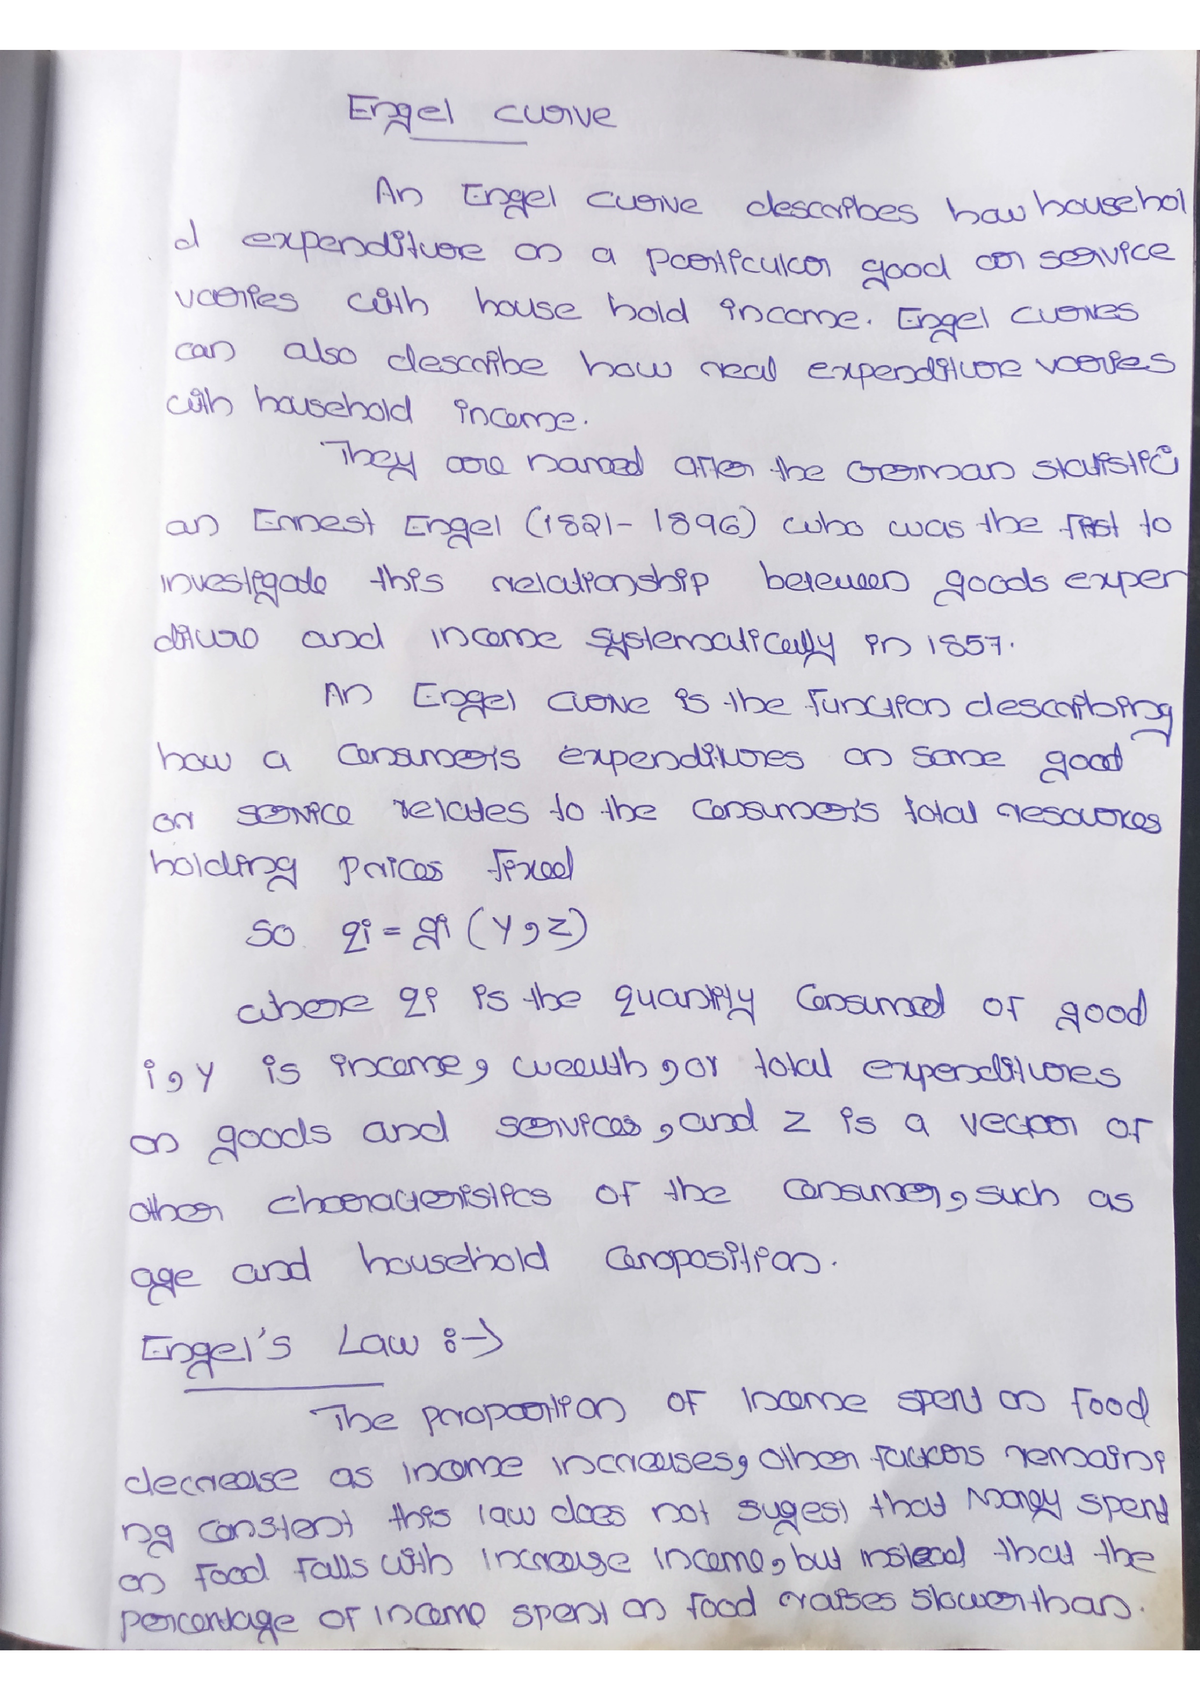 Engel curve
An Engel curve describes how househol
d expenditure on a particular good or service
varies with house hold income. Engel curves
can also describe how real expenditure varies
with household income.
They are named after the German statistici
an Ernest Engel (1821-1896) who was the first to
investigate this relationship between goods expen
diture and income systematically in 1857.
An Engel curve is the function describing
how a consumers expenditures on some good
or service relates to the consumer's total resources
holding prices fixed
So qi = gi (y, z)
where qi is the quantity consumed of good
i, y is income, wealth, or total expenditures
on goods and services, and z is a vector of
other characteristics of the consumer, such as
age and household composition.
Engel's Law :->
The proportion of income spent on food
decrease as income increases, other factors remaini
ng constent this law does not sugest that money spent
on food falls with increase income, but instead that the
percentage of income spent on food raises slower than.